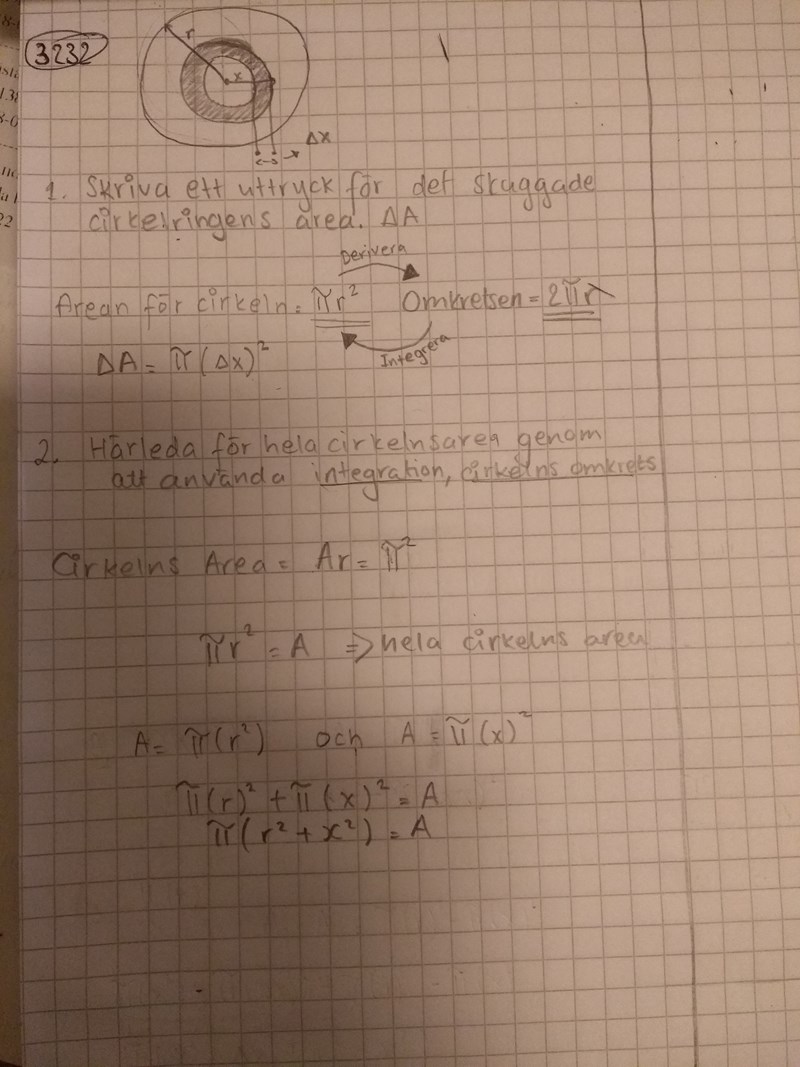 3232
r
x
Δx
1. Skriva ett uttryck för det skuggade
cirkelringens area. ΔA
Derivera
Arean för cirkeln = πr² Omkretsen = 2πr
Integrera
ΔA = π(Δx)²
2. Härleda för hela cirkelns area genom
att använda integration, cirkelns omkrets
Cirkelns Area = Ar = π²
πr² = A => hela cirkelns area
A = π(r²) och A = π(x)²
π(r)² + π(x)² = A
π(r² + x²) = A